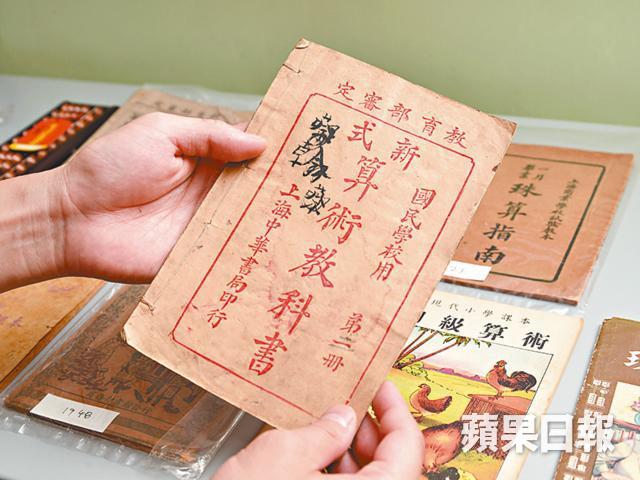 教育部審定
國民學校用
新式算術教科書
第二冊
上海中華書局印行
珠算指南
現代小學課本
級算術
1948
蘋果日報